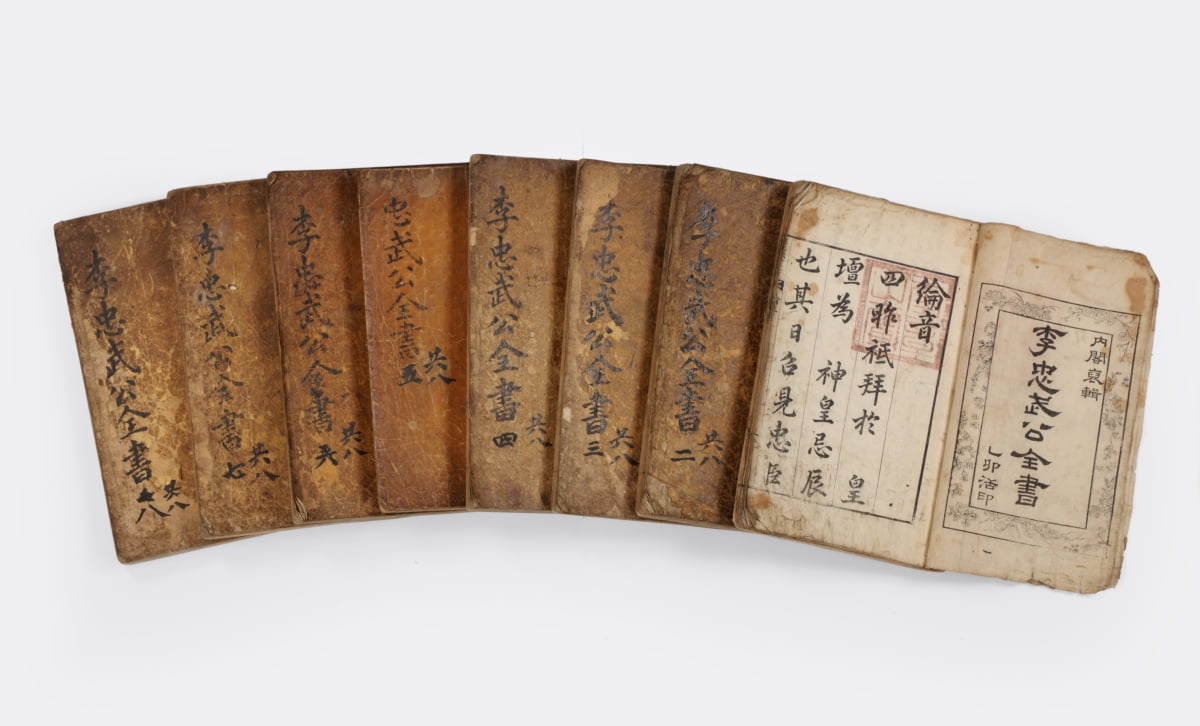 內閣裒輯
李忠武公全書
乙卯活印
綸音
四昨祗拜於 皇
壇為 神皇忌辰
也其日召見忠臣
李忠武公全書
共八
二
李忠武公全書
共八
三
李忠武公全書
共八
四
忠武公全書
共八
五
李忠武公全書
共八
六
李忠武公全書
共八
七
李忠武公全書
共八
八